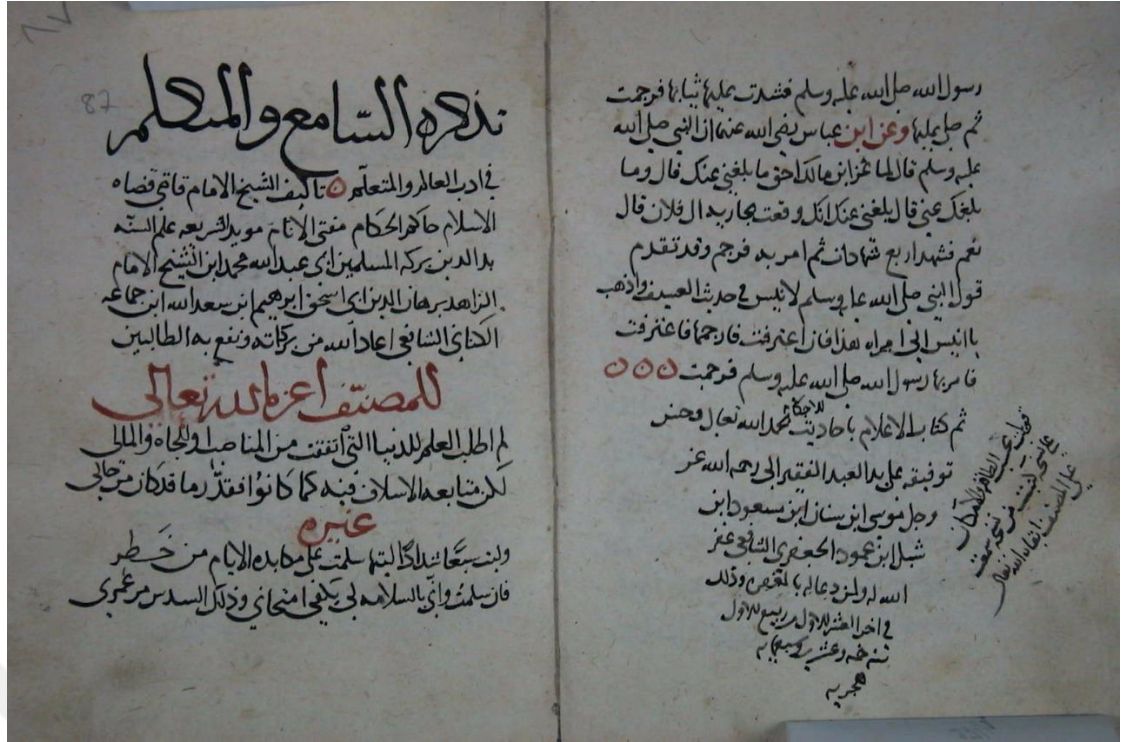 رسول الله صلى الله عليه وسلم فشدت عليها ثيابها فرجمت
ثم صلى عليها وعن ابن عباس رضي الله عنهما ان النبي صلى الله
عليه وسلم قال لماعز ابن مالك احق ما بلغني عنك قال وما
بلغك عني قال بلغني عنك انك وقعت بجارية ال فلان قال
نعم فشهد اربع شهادات ثم امر به فرجم وقد تقدم
قول النبي صلى الله عليه وسلم لانيس في حديث العسيف واذهب
يا انيس الى امراه هذا فان اعترفت فارجمها فاعترفت
فامر بها رسول الله صلى الله عليه وسلم فرجمت ○○○
ثم كتاب الاعلام باحاديث الاحكام بحمد الله تعالى وحسن
توفيقه على يد العبد الفقير الى رحمه الله عز
وجل موسى ابن سنان ابن مسعود ابن
شبل ابن الجعفري الشافعي غفر
الله له ولمن دعا له بالمغفره وذلك
في اخر العشر الاول من ربيع الاول
سنه خمسه وعشرين وسبعمايه
هجريه
بحسب الطاقه والامكان
على نسخة من نسخه
على المصنف ابقاه الله تعالى
87
تذكره السامع والمتكلم
في ادب العالم والمتعلم ○ تاليف الشيخ الامام قاضي قضاه
الاسلام حاكم الحكام مفتي الانام مويد الشريعه علم السنه
بدر الدين بركه المسلمين ابي عبد الله محمد ابن الشيخ الامام
الزاهد برهان الدين ابي اسحق ابرهيم ابن سعد الله ابن جماعه
الكناني الشافعي اعاد الله من بركاته ونفع به الطالبين
للمصنف اعزه الله تعالى
لم اطلب العلم للدنيا التي اتفقت من المناصب او للجاه والمال
لكن متابعه الاسلاف فيه كما كانوا فقدر ما قد كان من حالي
غيره
سلمت على مكابده الايام من خطر
فان سلمت واني بالسلامه لي يكفي امتحاني وذلك السدس من عمري